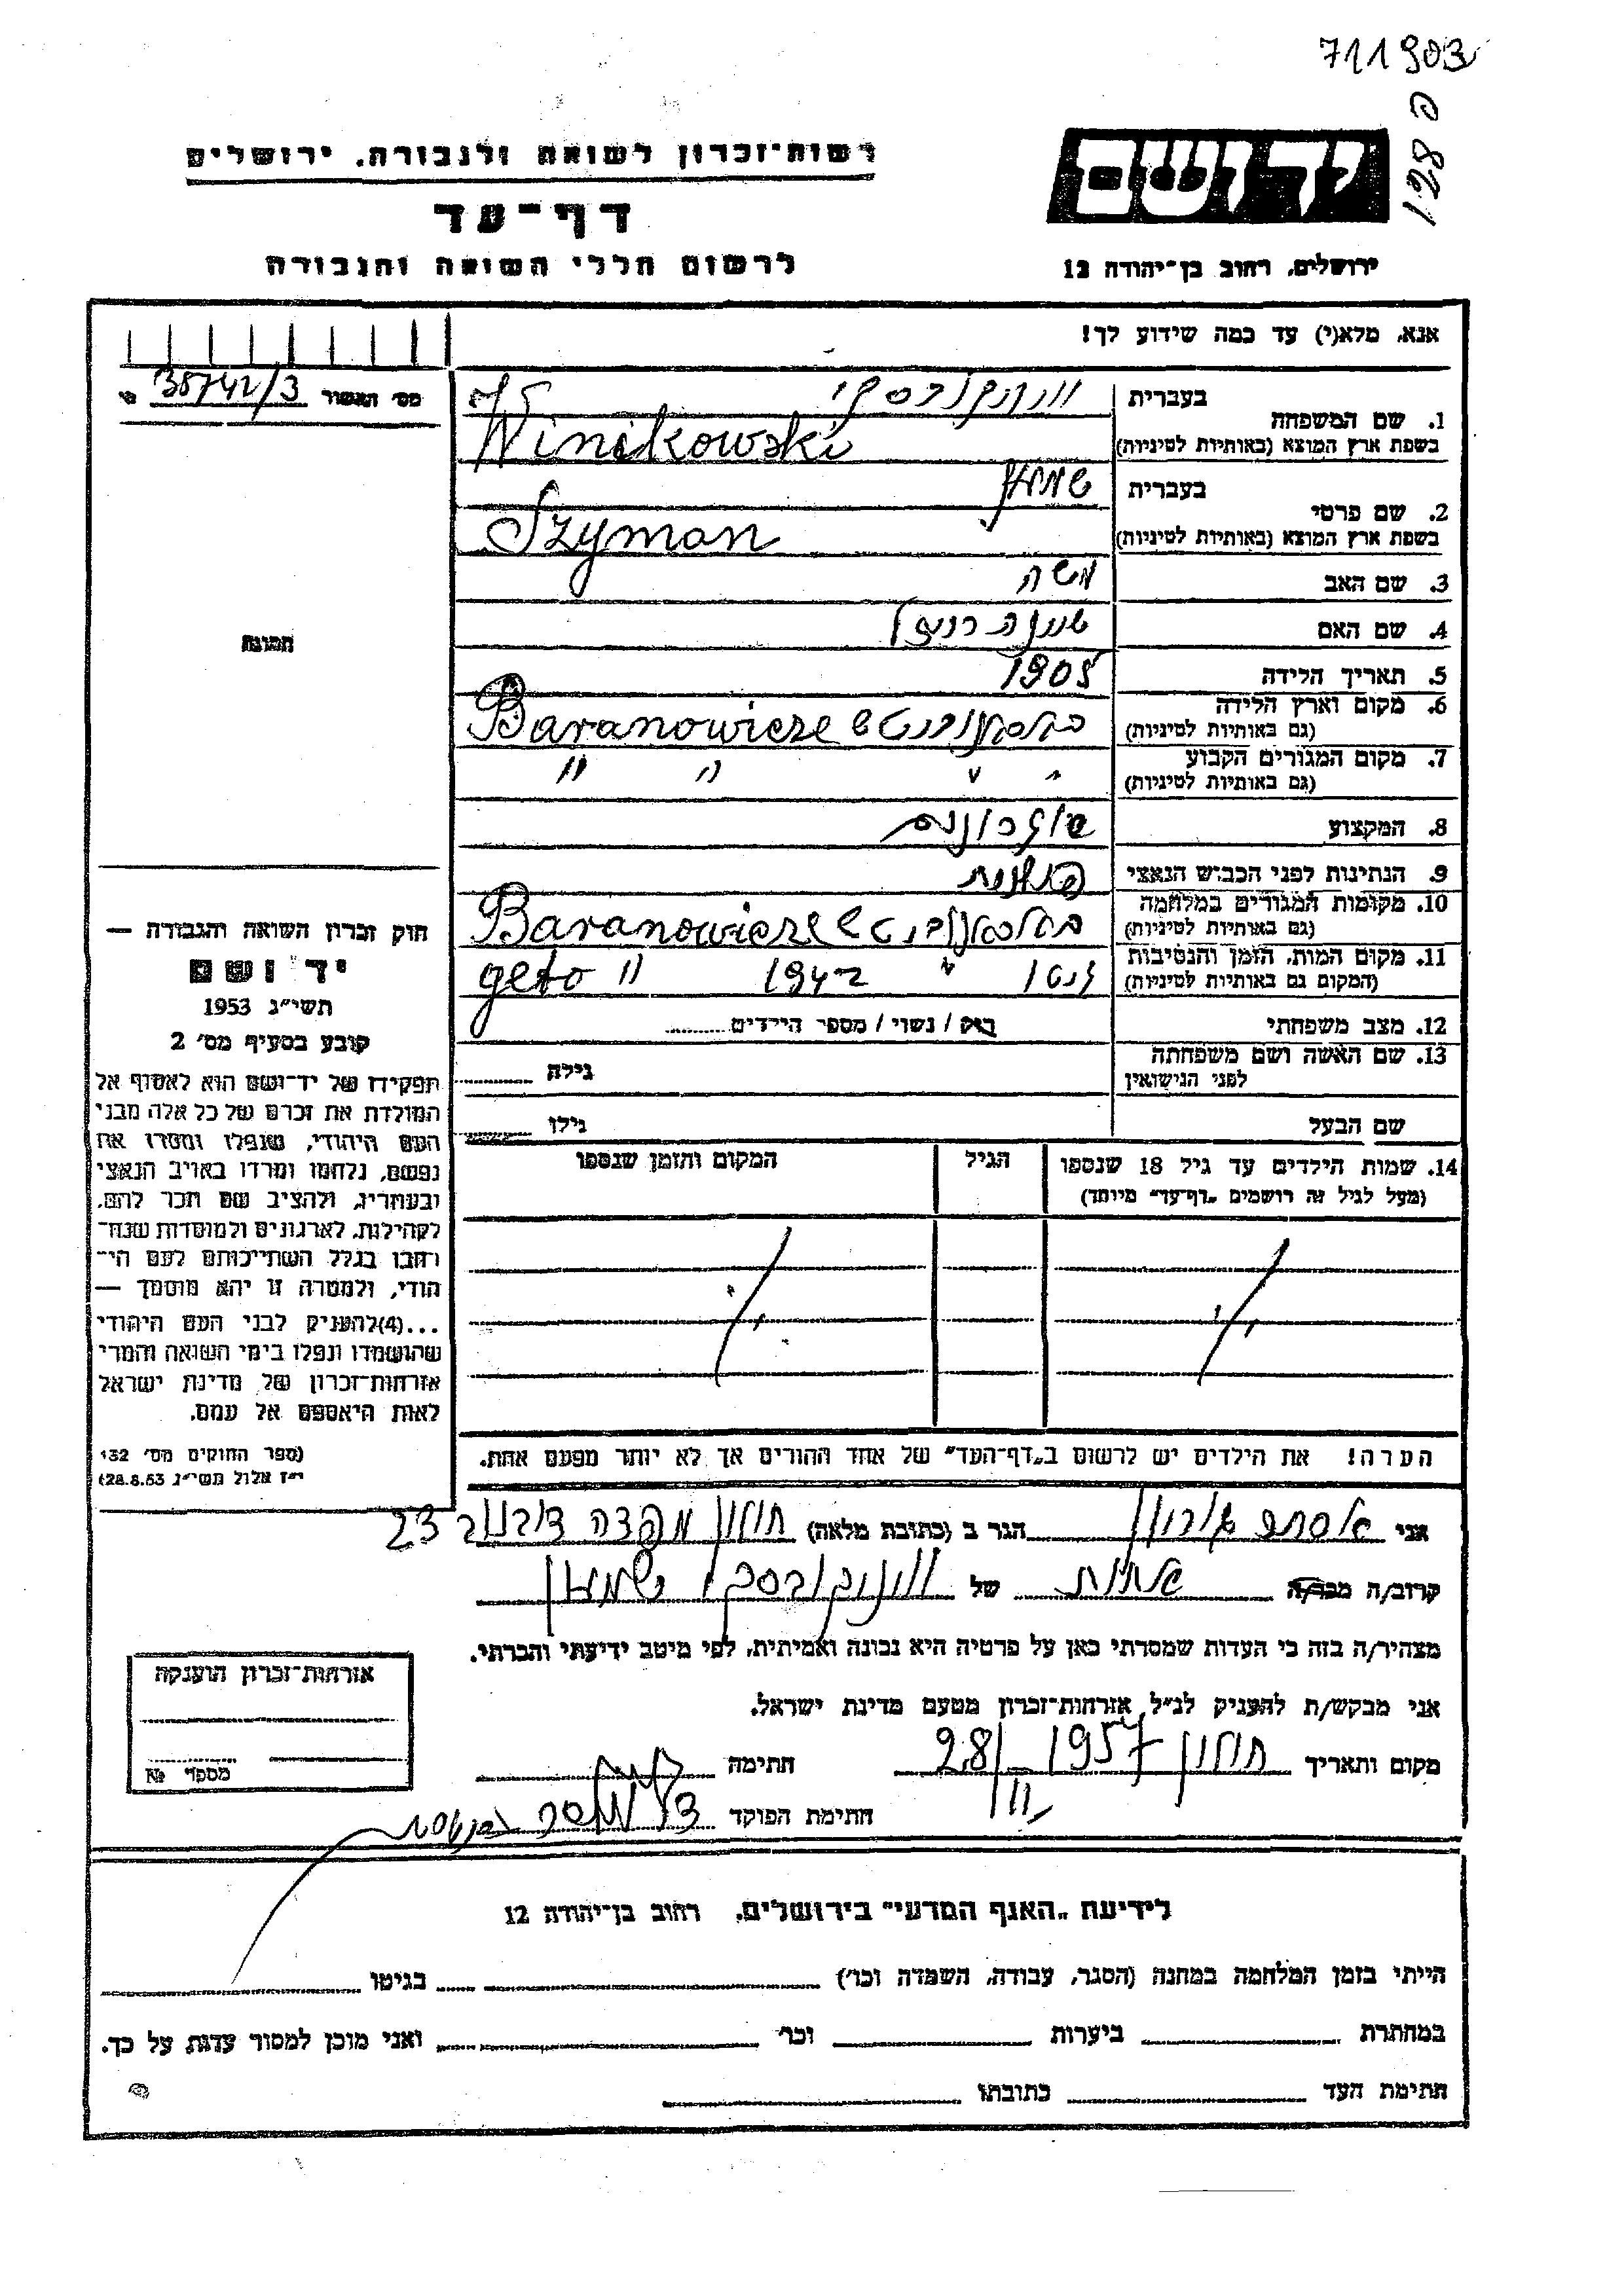 711903
128 פ
רשות־זכרון לשואה ולגבורה, ירושלים
יד ושם
דף־עד
לרשום חללי השואה והגבורה
ירושלים, רחוב בן־יהודה 12
אנא, מלא(י) עד כמה שידוע לך!
מס׳ האשור 38742/3
1. שם המשפחה בעברית ויניקובסקי
בשפת ארץ המוצא (באותיות לטיניות) Winikowski
2. שם פרטי בעברית שמעון
בשפת ארץ המוצא (באותיות לטיניות) Szyman
3. שם האב משה
4. שם האם
5. תאריך הלידה 1905
6. מקום וארץ הלידה
(גם באותיות לטיניות) Baranowicze
7. מקום המגורים הקבוע
(גם באותיות לטיניות) " " " "
8. המקצוע
9. הנתינות לפני הכבוש הנאצי
10. מקומות המגורים במלחמה
(גם באותיות לטיניות) Baranowicze
11. מקום המות, הזמן והנסיבות
(המקום גם באותיות לטיניות) גטו " 1942 geto "
12. מצב משפחתי רווק / נשוי / מספר הילדים
13. שם האשה ושם משפחתה
לפני הנישואין גילה
שם הבעל גילו
14. שמות הילדים עד גיל 18 שנספו הגיל המקום והזמן שנספו
(מעל לגיל זה רושמים „דף־עד" מיוחד)
תמונה
חוק זכרון השואה והגבורה —
יד ושם
תשי״ג 1953
קובע בסעיף מס׳ 2
תפקידו של יד־ושם הוא לאסוף אל
המולדת את זכרם של כל אלה מבני
העם היהודי, שנפלו ומסרו את
נפשם, נלחמו ומרדו באויב הנאצי
ובעוזריו, ולהציב שם וזכר להם,
לקהילות, לארגונים ולמוסדות שנח־
רבו בגלל השתייכותם לעם הי־
הודי, ולמטרה זו יהא מוסמך —
...(4)להעניק לבני העם היהודי
שהושמדו ונפלו בימי השואה והמרי
אזרחות־זכרון של מדינת ישראל
לאות היאספם אל עמם.
(ספר החוקים מס׳ 132
י״ז אלול תשי״ג 28.8.53)
הערה! את הילדים יש לרשום ב„דף־העד" של אחד ההורים אך לא יותר מפעם אחת.
אני אסתר הגר ב (כתובת מלאה) חולון 23
קרוב/ה מכר/ה אחות של ויניקובסקי שמעון
מצהיר/ה בזה כי העדות שמסרתי כאן על פרטיה היא נכונה ואמיתית, לפי מיטב ידיעתי והכרתי.
אני מבקש/ת להעניק לנ״ל אזרחות־זכרון מטעם מדינת ישראל.
מקום ותאריך חולון 28/II 1957 חתימה
חתימת הפוקד
אזרחות־זכרון הוענקה
מספר №
לידיעת „האגף המדעי" בירושלים, רחוב בן־יהודה 12
הייתי בזמן המלחמה במחנה (הסגר, עבודה, השמדה וכו׳) בגיטו
במחתרת ביערות וכו׳ ואני מוכן למסור עדות על כך.
חתימת העד כתובתו